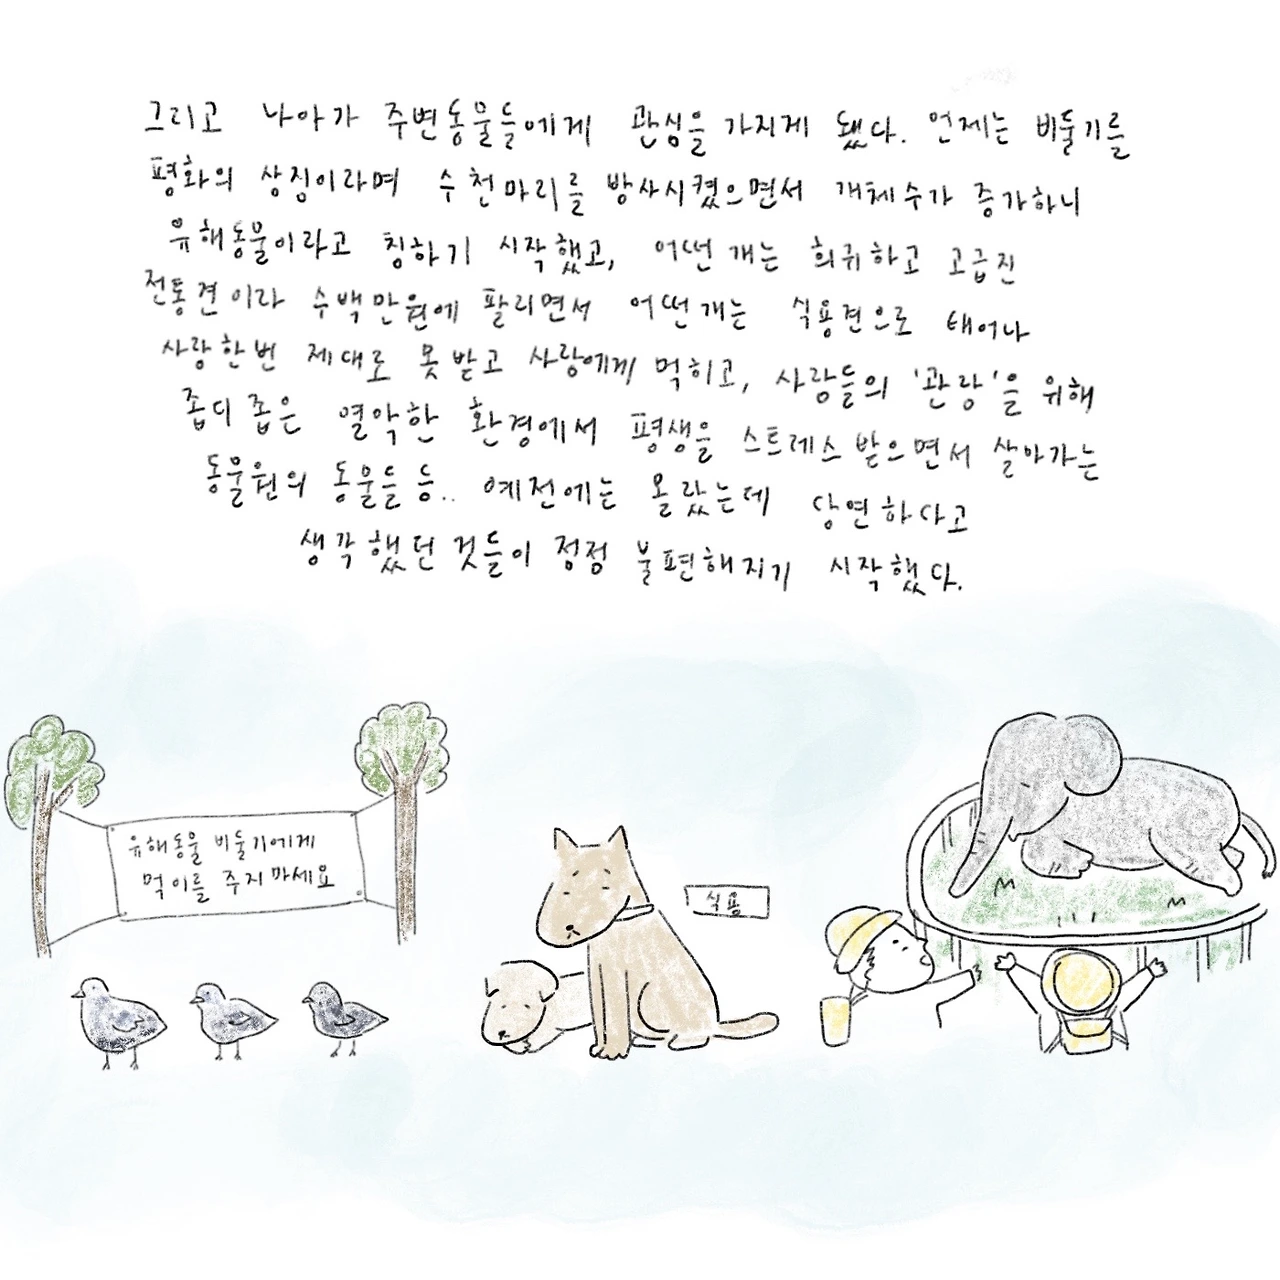 그리고 나아가 주변동물들에게 관심을 가지게 됐다. 언제는 비둘기를
평화의 상징이라며 수천마리를 방사시켰으면서 개체수가 증가하니
유해동물이라고 칭하기 시작했고, 어떤개는 희귀하고 고급진
전통견이라 수백만원에 팔리면서 어떤개는 식용견으로 태어나
사랑한번 제대로 못받고 사람에게 먹히고, 사람들의 '관람'을 위해
좁디좁은 열악한 환경에서 평생을 스트레스 받으면서 살아가는
동물원의 동물들 등.. 예전에는 몰랐는데 당연하다고
생각했던 것들이 점점 불편해지기 시작했다.
유해동물 비둘기에게
먹이를 주지마세요
식용